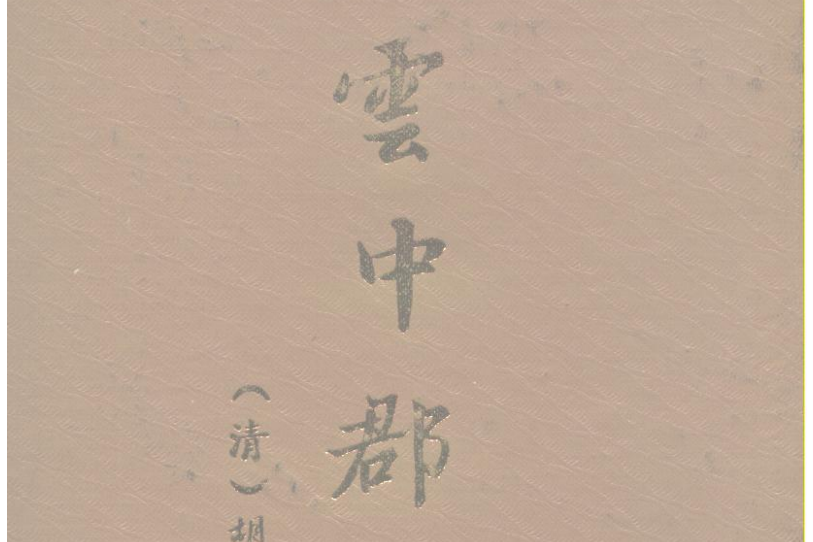 雲中郡
（清）胡